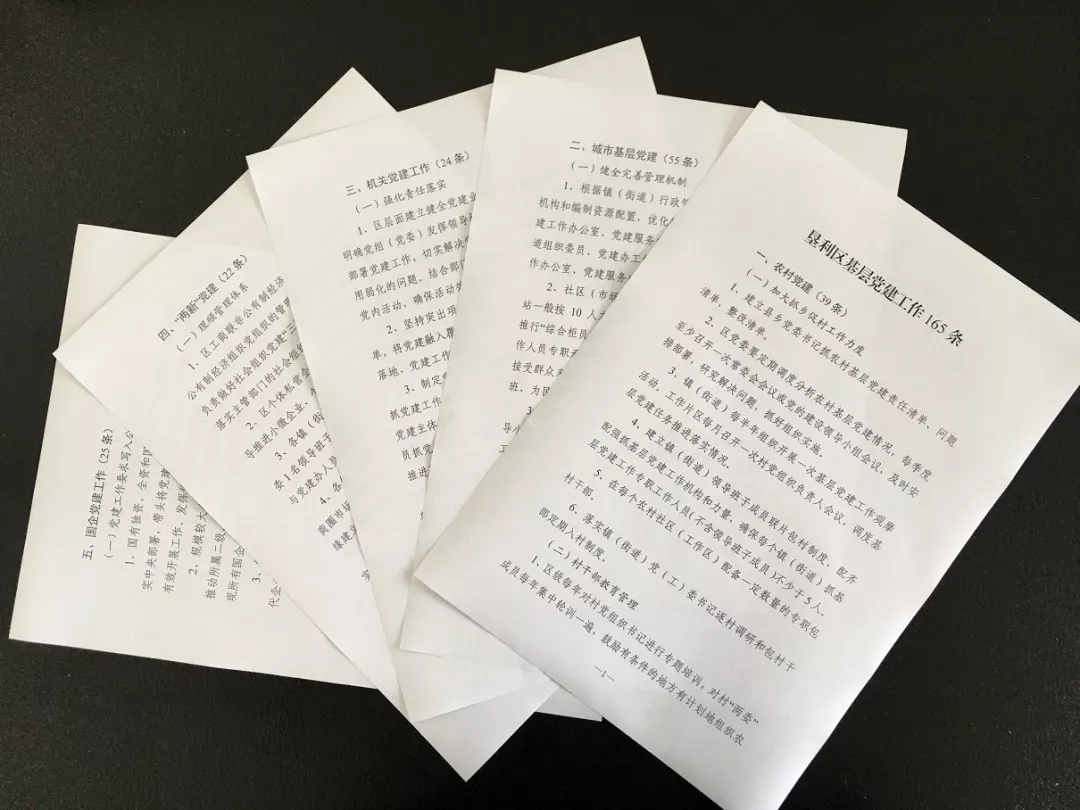 垦利区基层党建工作 165 条
一、农村党建（39 条）
（一）加大抓乡促村工作力度
1、建立县乡党委书记抓农村基层党建责任清单、问题
清单、整改清单。
2、区党委要定期调度分析农村基层党建情况，每季度
至少召开一次常委会会议或党的建设领导小组会议，及时安
排部署，研究解决问题，抓好组织实施。
3、镇（街道）每半年组织开展一次基层党建工作观摩
活动，工作片区每月召开一次村党组织负责人会议，调度基
层党建任务推进落实情况。
4、建立镇（街道）领导班子成员联片包村制度，配齐
配强抓基层党建工作机构和力量，确保每个镇（街道）抓基
层党建工作专职工作人员（不含领导班子成员）不少于 5 人。
5、在每个农村社区（工作区）配备一定数量的专职包
村干部。
6、落实镇（街道）党（工）委书记逐村调研和包村干
部定期入村制度。
（二）村干部教育管理
1、区级每年对村党组织书记进行专题培训，对村“两委”
成员每年集中轮训一遍，鼓励有条件的地方有计划地组织农
—1—
二、城市基层党建（55 条）
（一）健全完善管理机制
1、根据镇（街道）行政管
机构和编制资源配置，优化
建工作办公室、党建服务
道组织委员、党建办工
作办公室、党建服务
2、社区（市
站一般按 10 人
推行“综合柜员
作人员专职
接受群众
班，为
3、
三、机关党建工作（24 条）
（一）强化责任落实
1、区层面建立健全党建业
明确党组（党委）发挥领导
部署党建工作，切实解决
用弱化的问题。结合部
党内活动，确保活动
2、坚持突出项
单，将党建融入
落地、党建工作
3、制定
抓党建工作
党建主体
员抓党
推进
四、“两新”党建（22 条）
（一）理顺管理体系
1、区工商联非公有制经济
公有制经济组织党组织的管
负责做好社会组织党建“三
落实主管部门的社会组
2、区个体私营
导推进小微企业、
3、各镇（街
委 1 名领导班子
与党建办人
4、各
商圈市场
缘建立
五、国企党建工作（25 条）
（一）党建工作要求写入公
1、国有独资、全资和
实中央部署，带头将党建
有效开展工作、发挥
2、规模较大
推动所属二级
现所有国企
3、
代企